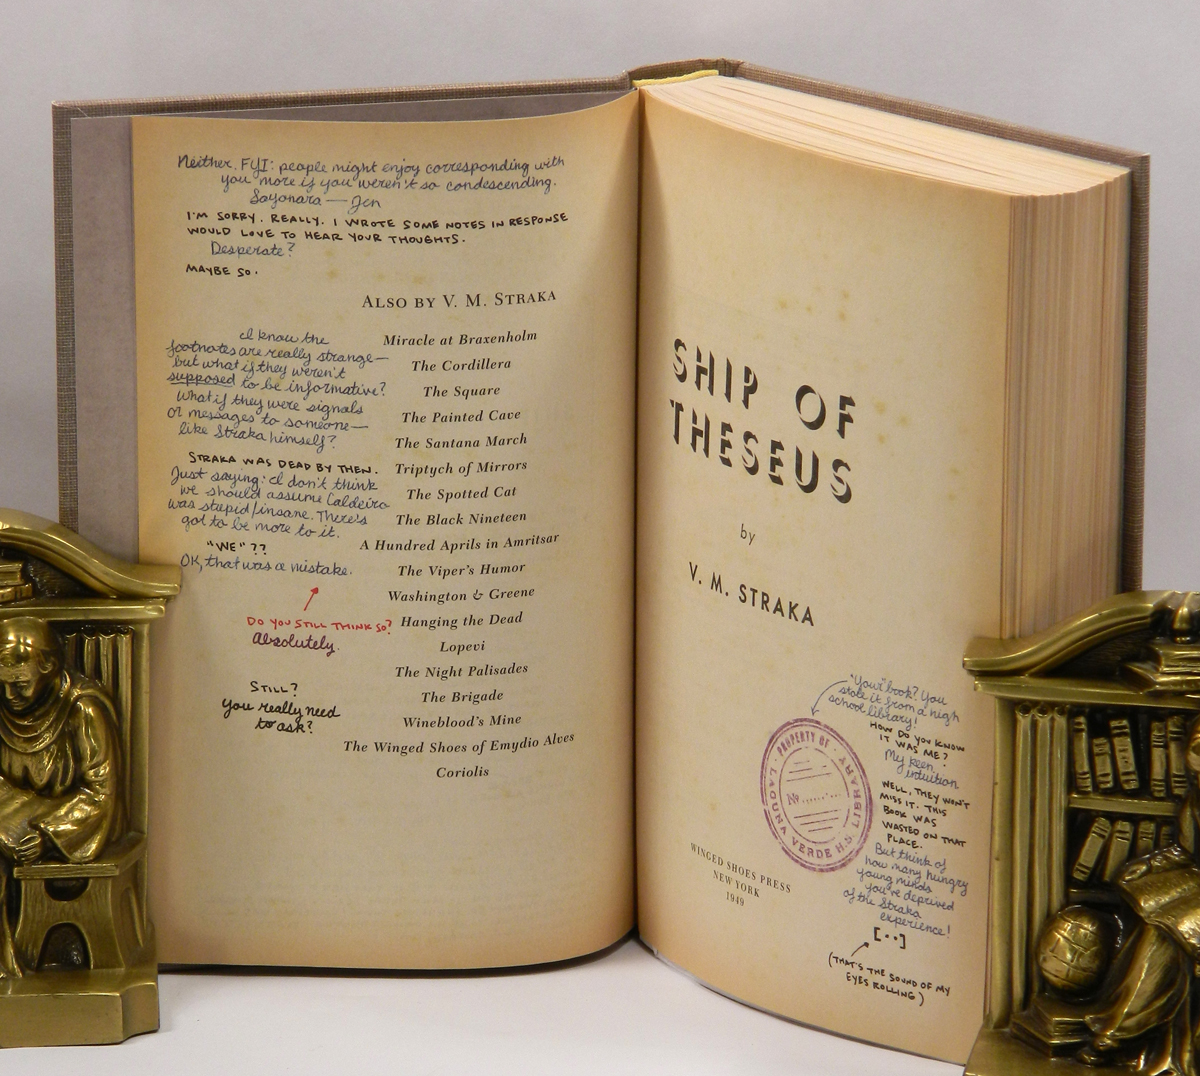 Neither. FYI: people might enjoy corresponding with
you more if you weren't so condescending.
Sayonara — Jen
I'M SORRY. REALLY. I WROTE SOME NOTES IN RESPONSE
WOULD LOVE TO HEAR YOUR THOUGHTS.
Desperate?
MAYBE SO.
ALSO BY V. M. STRAKA
Miracle at Braxenholm
The Cordillera
The Square
The Painted Cave
The Santana March
Triptych of Mirrors
The Spotted Cat
The Black Nineteen
A Hundred Aprils in Amritsar
The Viper's Humor
Washington & Greene
Hanging the Dead
Lopevi
The Night Palisades
The Brigade
Wineblood's Mine
The Winged Shoes of Emydio Alves
Coriolis
I know the
footnotes are really strange—
but what if they weren't
supposed to be informative?
What if they were signals
or messages to someone—
like Straka himself?
STRAKA WAS DEAD BY THEN.
Just saying: I don't think
we should assume Caldeira
was stupid/insane. There's
got to be more to it.
"WE"??
OK, that was a mistake.
DO YOU STILL THINK SO?
Absolutely.
STILL?
You really need
to ask?
SHIP OF
THESEUS
by
V. M. STRAKA
"Your" book? You
stole it from a high
school library!
HOW DO YOU KNOW
IT WAS ME?
My keen
intuition
WELL, THEY WON'T
MISS IT. THIS
BOOK WAS
WASTED ON THAT
PLACE.
But think of
how many hungry
young minds
you've deprived
of the Straka
experience!
[··]
(THAT'S THE SOUND OF MY
EYES ROLLING)
PROPERTY OF
LAGUNA VERDE H.S. LIBRARY
No.......
WINGED SHOES PRESS
NEW YORK
1949